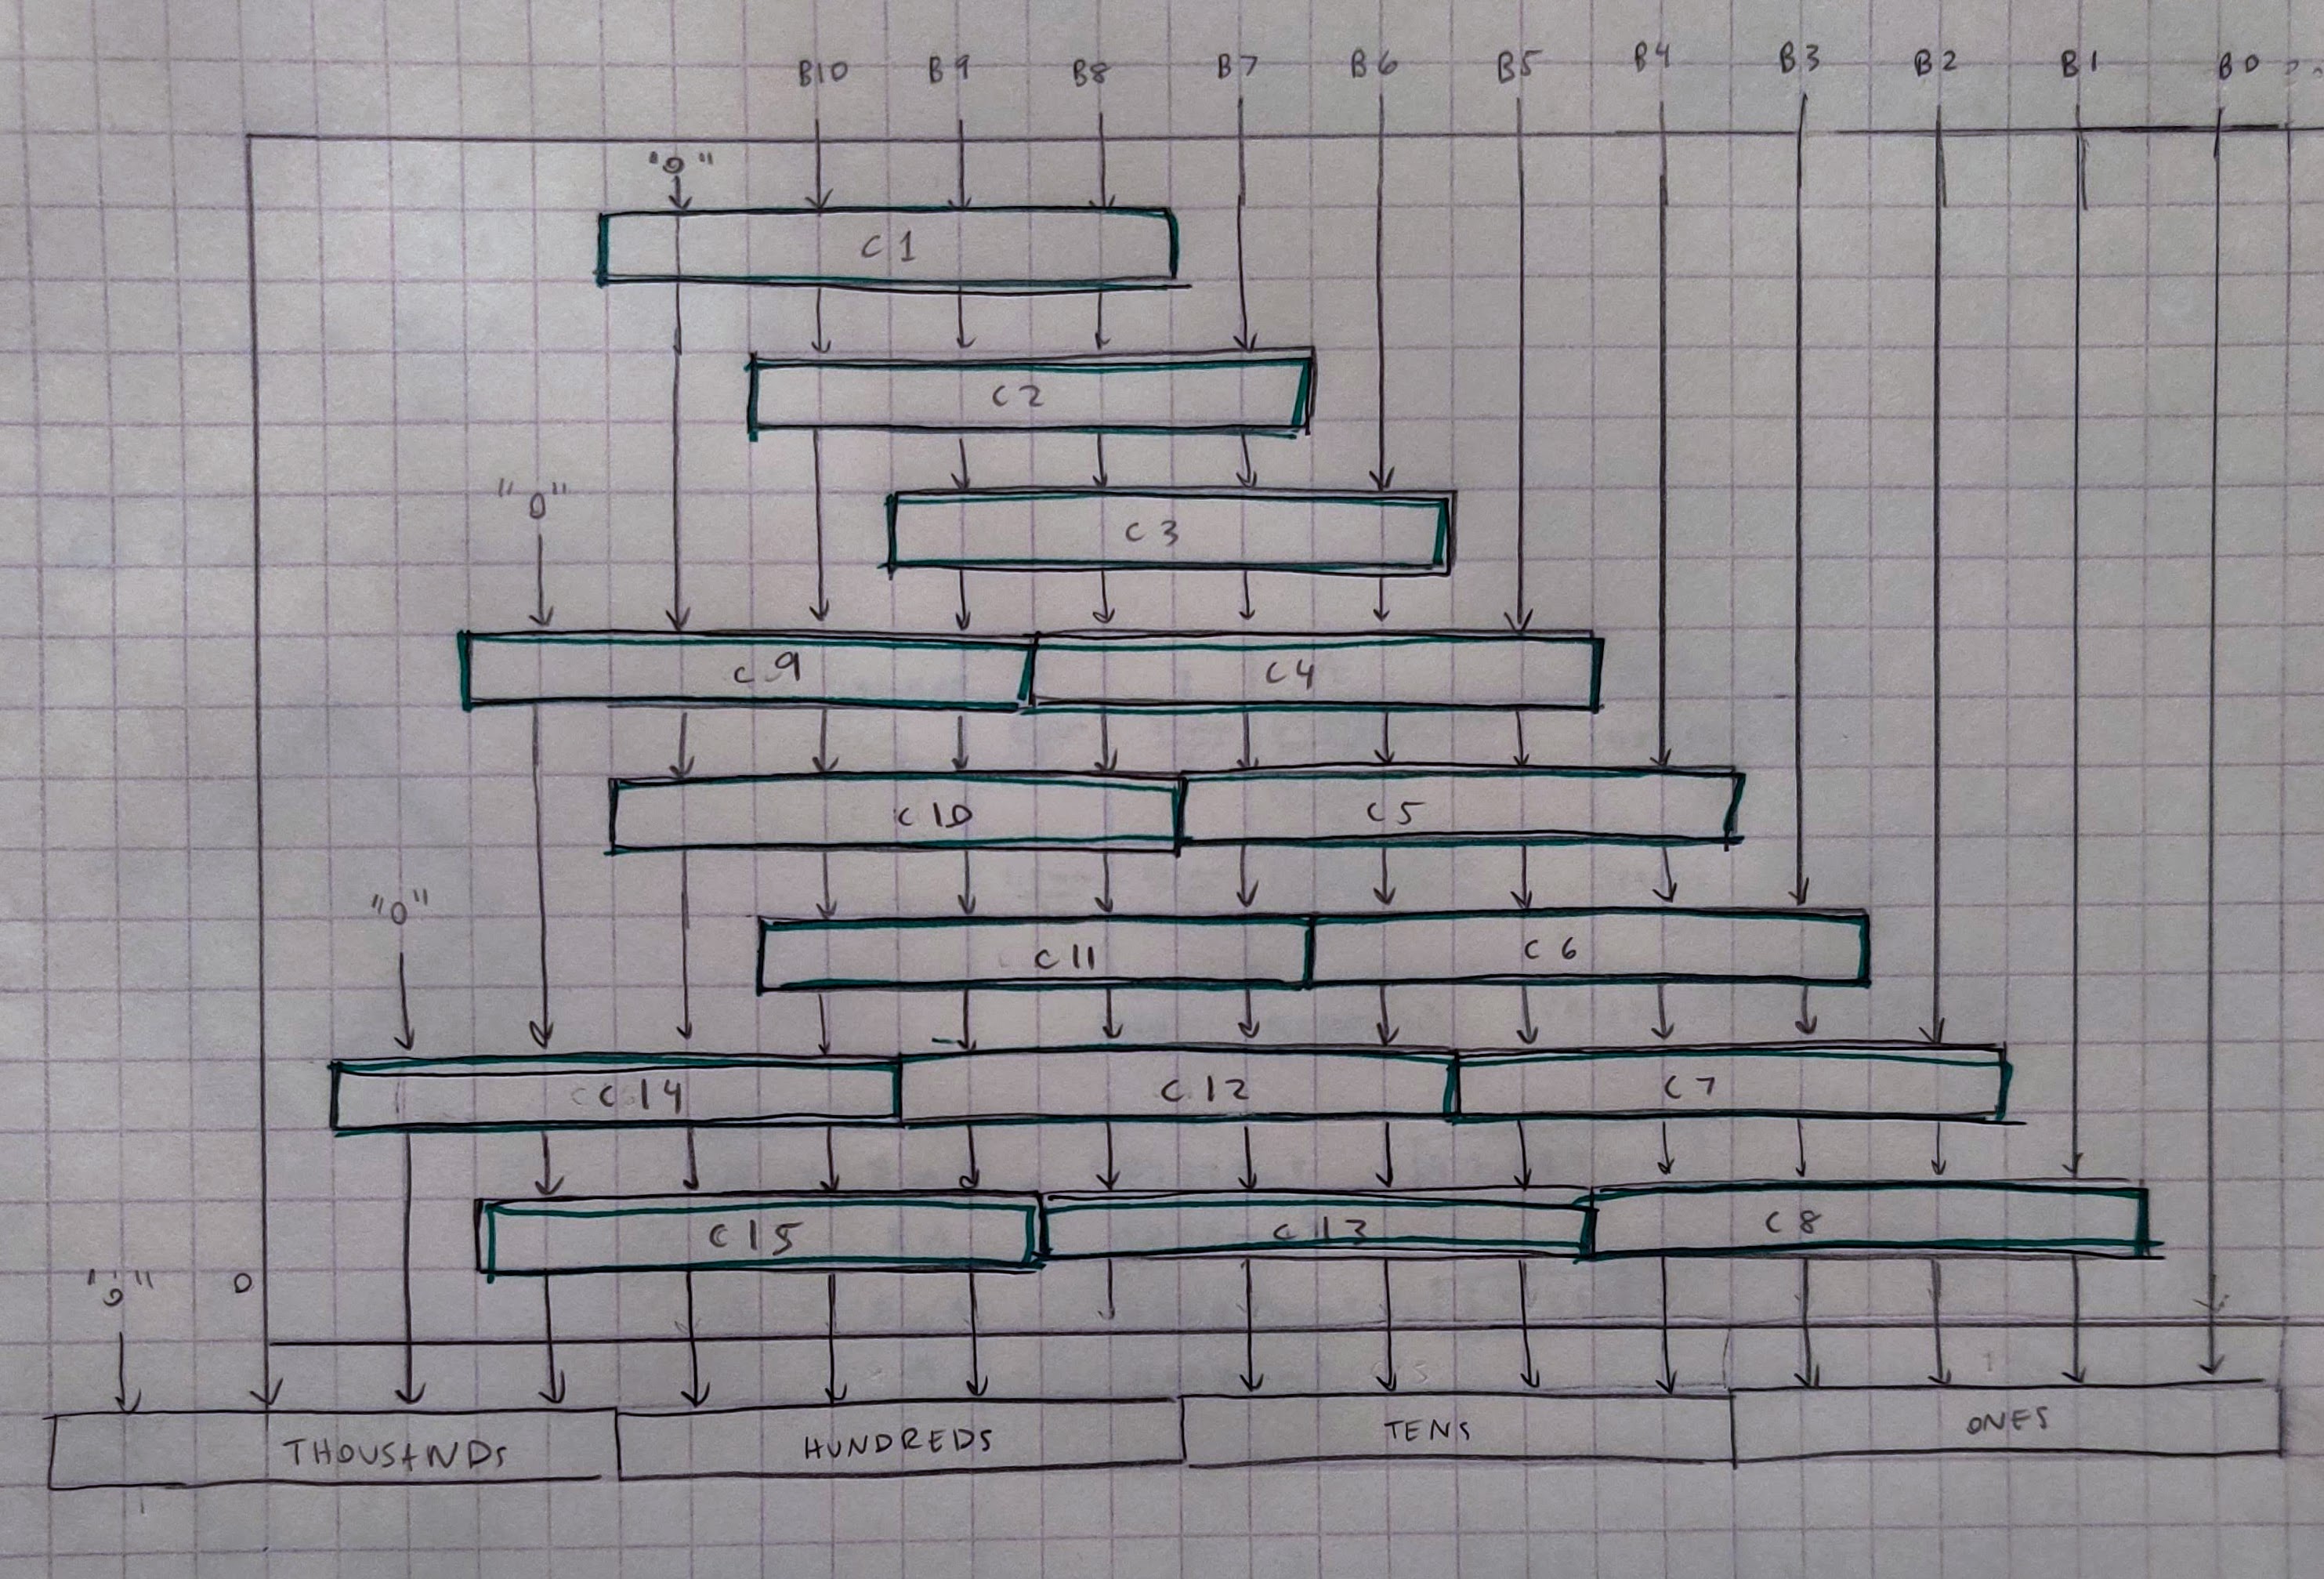 B10 B9 B8 B7 B6 B5 B4 B3 B2 B1 B0
"0"
C1
C2
"0"
C3
C9 C4
C10 C5
"0"
C11 C6
C14 C12 C7
C15 C13 C8
"0" 0
THOUSANDS HUNDREDS TENS ONES